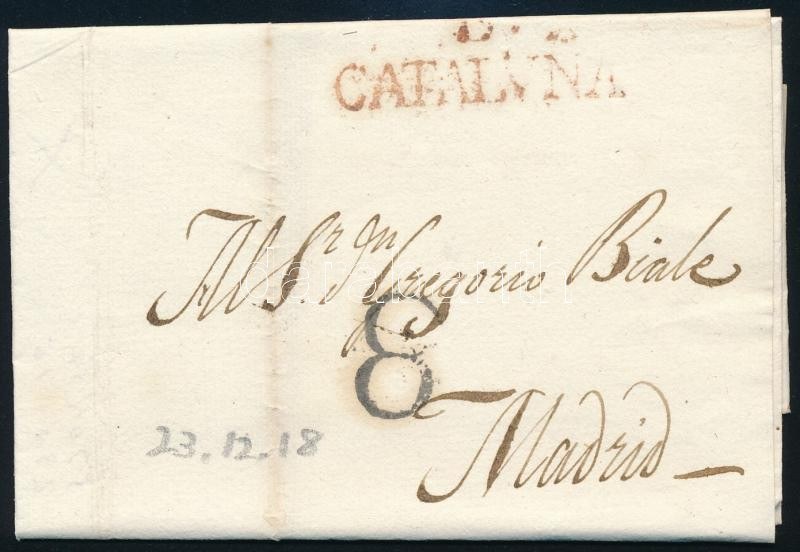 CATALUÑA
Al Sr. Dn. Gregorio Biale
8
Madrid
23.12.18